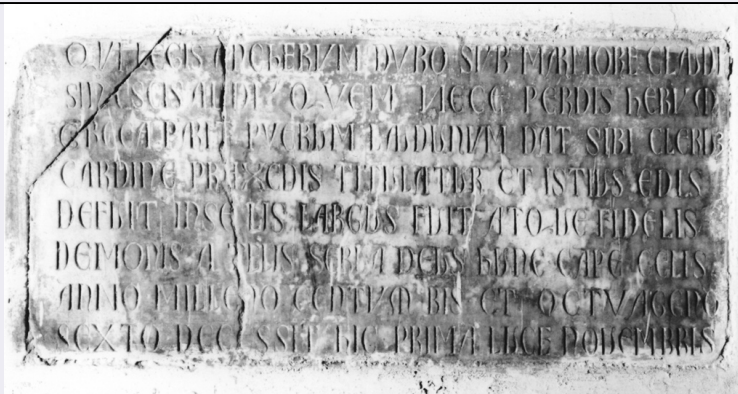 QVI LEGIS ANCHERVM DVRO SVB MARMORE CLAUDI
SI NESCIS AUDI QVEM NECE PERDIS HERVM
GRECA PARIT PVERUM LAUDUNUM DAT SIBI CLERUM
CARDINE PRAXEDIS TITULATUR ET ISTIUS EDIS
DEFUIT IN SE LIS LARGUS FUIT ATQUE FIDELIS
DEMONIS A TELIS SERUA DEUS HUNC CAPE CELIS
ANNO MILLENO CENTVM BIS ET OCTVAGENO
SEXTO DECESSIT HIC PRIMA LUCE NOUEMBRIS